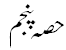 حصہ پنجم